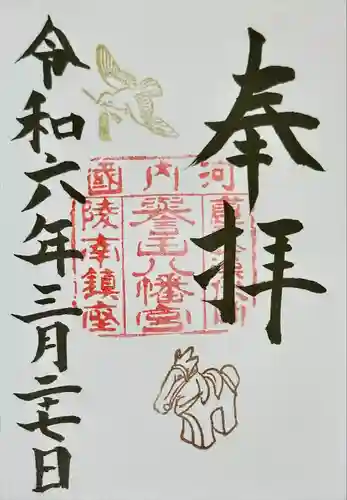 奉拝
河内國
譽田八幡宮
陵南鎮座
令和六年三月二十七日